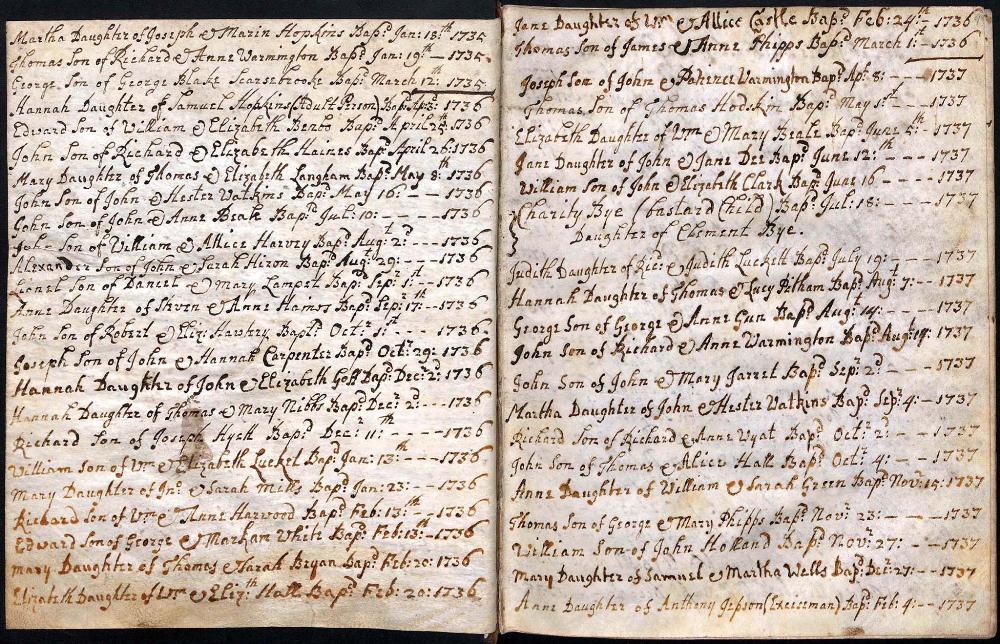 Martha Daughter of Joseph & Marin Hopkins Bap.d Jan: 18th 1735
Thomas Son of Richard & Anne Warmington Bap.d Jan: 19th — 1735
George Son of George Blake Scarsebrooke Bap: March 12: 1735
Hannah Daughter of Samuel Hopkins (Adult Person) Bap.d Apr: 1736
Edward Son of William & Elizabeth Benbo Bap.d April 25th 1736
John Son of Richard & Elizabeth Haines Bap.d April 26: 1736
Mary Daughter of Thomas & Elizabeth Langham Bap.d May 8: 1736
John Son of John & Hester Watkins Bap: May 16 - - 1736
John Son of John & Anne Beale Bap.d Jul: 10: - - - 1736
John Son of William & Allice Harvey Bap.d Aug: 2.d - - - 1736
Alexander Son of John & Sarah Hiron Bap: Aug.t 29: - - - 1736
Lionel Son of Daniel & Mary Lampet Bap.d Sep: 1st - - 1736
Anne Daughter of Steven & Anne Hames Bap.d Sep: 17: - - 1736
John Son of Robert & Eliz: Hawtry Bapt.d Oct: 11th - - - 1736
Joseph Son of John & Hannah Carpenter Bap.d Oct: 29: 1736
Hannah Daughter of John & Elizabeth Goff Bap.d Dec: 2: 1736
Hannah Daughter of Thomas & Mary Nibbs Bap.d Dec: 2: - - - 1736
Richard Son of Joseph Hyett Bap.d Dec: 11th: - - - 1736
William Son of Wm & Elizabeth Lucket Bap: Jan: 13th - - 1736
Mary Daughter of Jno: & Sarah Mills Bap.d Jan: 23: - - 1736
Richard Son of Wm & Anne Harwood Bap.d Feb: 13: - - 1736
Edward Son of George & Markam White Bap: Feb: 13th: - 1736
Mary Daughter of Thomas & Sarah Bryan Bap.d Feb: 20: 1736
Elizabeth Daughter of Wm & Eliz:th Hall Bap.d Feb: 20: 1736
Jane Daughter of Wm & Allice Castle Bap.d Feb: 24th: - 1736
Thomas Son of James & Anne Phipps Bap.d March 1: - 1736
Joseph Son of John & Patience Warmington Bap.d Ap: 8: - - - 1737
Thomas Son of Thomas Hodskin Bap.d May 1st - - - 1737
Elizabeth Daughter of Wm & Mary Beale Bap.d June 5th: - 1737
Jane Daughter of John & Jane Dee Bap.d June 12th: - - - 1737
William Son of John & Elizabeth Clark Bap.d June 16 - - - 1737
Charity Bye (bastard Child) Bap.d Jul: 18: - - - 1737
Daughter of Clement Bye.
Judith Daughter of Ric: & Judith Luckett Bap: July 19: - - - 1737
Hannah Daughter of Thomas & Lucy Pitham Bap.d Aug: 7: - - 1737
George Son of George & Anne Gun Bap.d Aug: 14: - - - 1737
John Son of Richard & Anne Warmington Bap.d Aug: 19: 1737
John Son of John & Mary Jarret Bap.d Sep: 2.d - - - 1737
Martha Daughter of John & Hester Watkins Bap.d Sep: 4: - 1737
Richard Son of Richard & Anne Wyat Bap.d Oct: 2.d - - - 1737
John Son of Thomas & Alice Hall Bap.d Oct: 4: - - - 1737
Anne Daughter of William & Sarah Green Bap.d Nov: 15: 1737
Thomas Son of George & Mary Phipps Bap.d Nov: 23: - - - 1737
William Son of John Holland Bap.d Nov: 27: - - 1737
Mary Daughter of Samuel & Martha Wells Bap.d Dec: 27: - - 1737
Anne Daughter of Anthony Jepson (Exciseman) Bap: Feb: 4: - - 1737